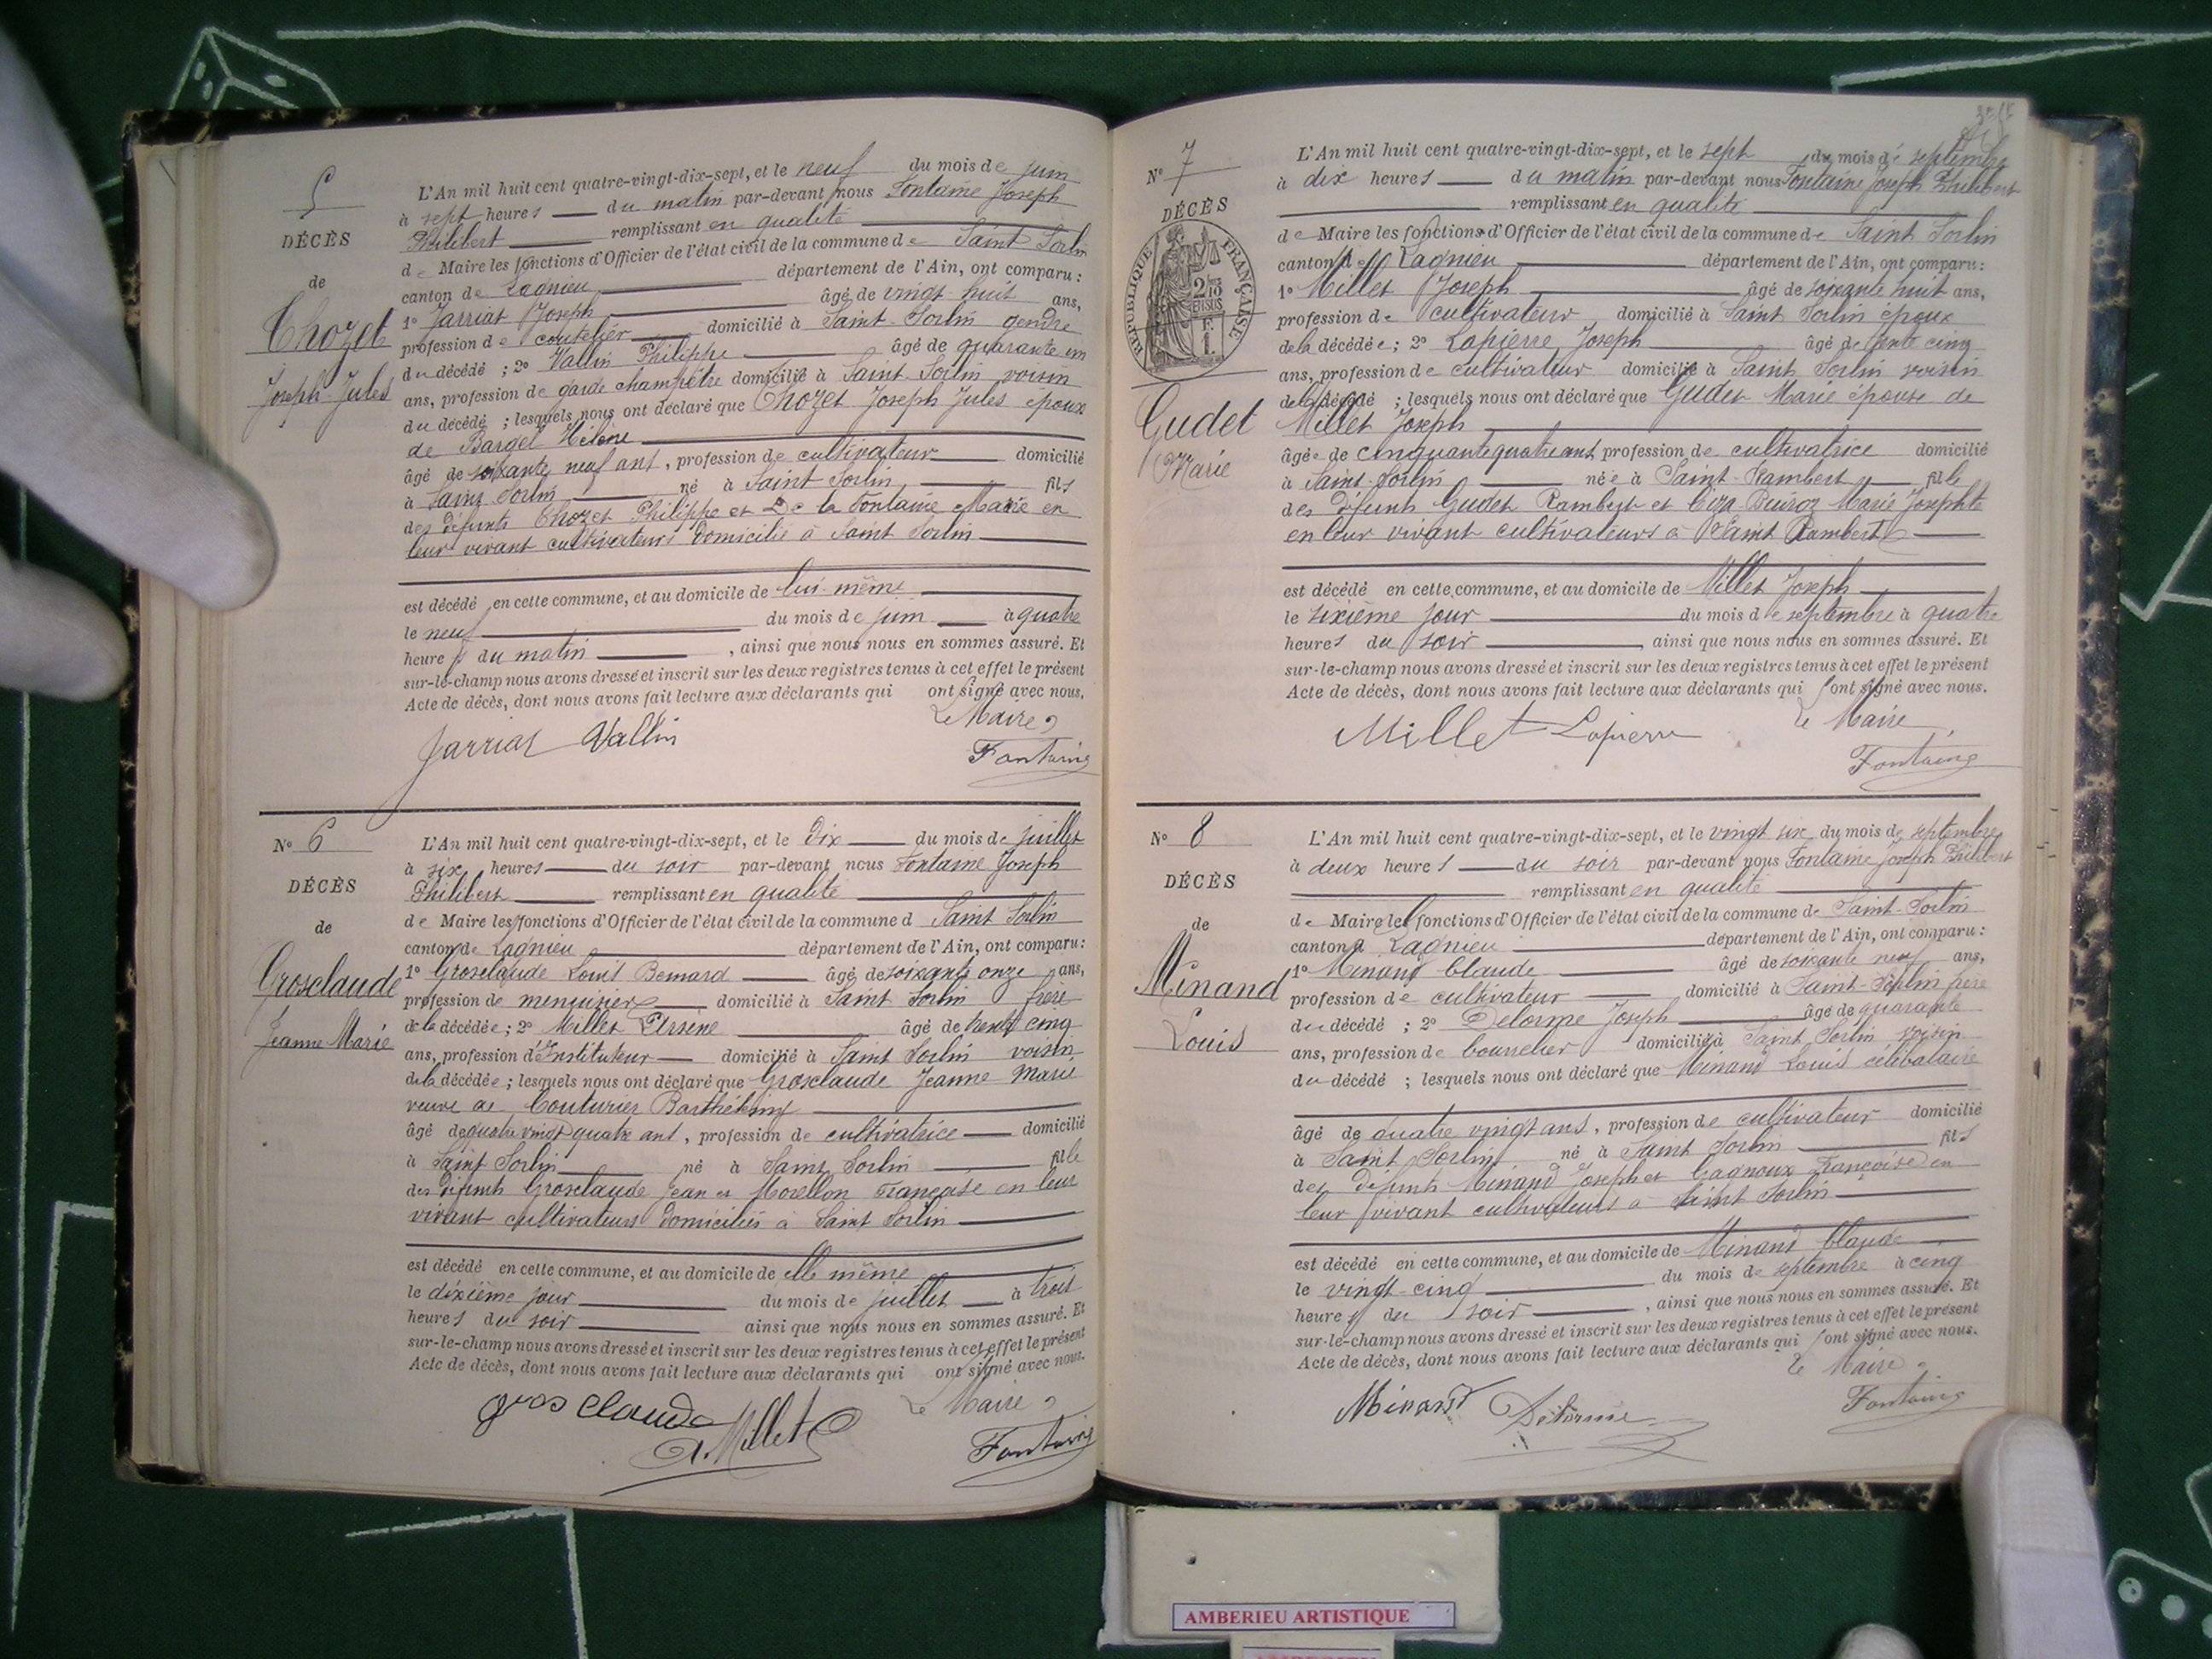 5
DÉCÈS
de
Chozet
Joseph Jules
L'An mil huit cent quatre-vingt-dix-sept, et le neuf du mois de juin
à sept heures du matin par-devant nous Fontaine Joseph
Philibert remplissant en qualité
de Maire les fonctions d'Officier de l'état civil de la commune de Saint Sorlin
canton de Lagnieu département de l'Ain, ont comparu :
1º Jarriat Joseph âgé de vingt huit ans,
profession de coutelier domicilié à Saint-Sorlin gendre
du décédé ; 2º Vallin Philippe âgé de quarante un
ans, profession de garde champêtre domicilié à Saint-Sorlin voisin
du décédé ; lesquels nous ont déclaré que Chozet Joseph Jules époux
de Barget Hélène
âgé de soixante neuf ans, profession de cultivateur domicilié
à Saint Sorlin né à Saint Sorlin fils
des défunts Chozet Philippe et De la Fontaine Marie en
leur vivant cultivateurs domiciliés à Saint Sorlin
est décédé en cette commune, et au domicile de lui-même
le neuf du mois de juin à quatre
heures du matin, ainsi que nous nous en sommes assuré. Et
sur-le-champ nous avons dressé et inscrit sur les deux registres tenus à cet effet le présent
Acte de décès, dont nous avons fait lecture aux déclarants qui ont signé avec nous,
Le Maire
Jarriat Vallin
Fontaine
Nº 6
DÉCÈS
de
Grosclaude
Jeanne Marie
L'An mil huit cent quatre-vingt-dix-sept, et le dix du mois de juillet
à six heures du soir par-devant nous Fontaine Joseph
Philibert remplissant en qualité
de Maire les fonctions d'Officier de l'état civil de la commune d Saint Sorlin
canton de Lagnieu département de l'Ain, ont comparu :
1º Grosclaude Louis Bernard âgé de soixante onze ans,
profession de menuisier domicilié à Saint Sorlin frère
de la décédée ; 2º Millet Arsène âgé de trente cinq
ans, profession d'Instituteur domicilié à Saint Sorlin voisin
de la décédée ; lesquels nous ont déclaré que Grosclaude Jeanne Marie
veuve de Couturier Barthélemy
âgé de quatre vingt quatre ans, profession de cultivatrice domicilié
à Saint Sorlin né à Saint Sorlin fille
des défunts Grosclaude Jean et Morellon Françoise en leur
vivant cultivateurs domiciliés à Saint Sorlin
est décédé en cette commune, et au domicile de elle même
le dixième jour du mois de juillet à trois
heures du soir ainsi que nous nous en sommes assuré. Et
sur-le-champ nous avons dressé et inscrit sur les deux registres tenus à cet effet le présent
Acte de décès, dont nous avons fait lecture aux déclarants qui ont signé avec nous.
Le Maire
gros claude
A. Millet
Fontaine
Nº 7
DÉCÈS
RÉPUBLIQUE FRANÇAISE
Gudet
Marie
L'An mil huit cent quatre-vingt-dix-sept, et le sept du mois de septembre
à dix heures du matin par-devant nous Fontaine Joseph Philibert
remplissant en qualité
de Maire les fonctions d'Officier de l'état civil de la commune de Saint Sorlin
canton de Lagnieu département de l'Ain, ont comparu :
1º Millet Joseph âgé de soixante huit ans,
profession de cultivateur domicilié à Saint Sorlin époux
de la décédée ; 2º Lapierre Joseph âgé de trente cinq
ans, profession de cultivateur domicilié à Saint Sorlin voisin
de la décédé ; lesquels nous ont déclaré que Gudet Marie épouse de
Millet Joseph
âgée de cinquante quatre ans profession de cultivatrice domicilié
à Saint-Sorlin née à Saint-Rambert fille
des défunts Gudet Rambert et Marie Josephte
en leur vivant cultivateurs à Saint Rambert
est décédé en cette commune, et au domicile de Millet Joseph
le sixième jour du mois de septembre à quatre
heures du soir, ainsi que nous nous en sommes assuré. Et
sur-le-champ nous avons dressé et inscrit sur les deux registres tenus à cet effet le présent
Acte de décès, dont nous avons fait lecture aux déclarants qui ont signé avec nous.
Le Maire
Millet Lapierre
Fontaine
Nº 8
DÉCÈS
de
Minand
Louis
L'An mil huit cent quatre-vingt-dix-sept, et le vingt six du mois de septembre
à deux heures du soir par-devant nous Fontaine Joseph Philibert
remplissant en qualité
de Maire les fonctions d'Officier de l'état civil de la commune de Saint-Sorlin
canton d Lagnieu département de l'Ain, ont comparu :
1º Minand Claude âgé de soixante neuf ans,
profession de cultivateur domicilié à Saint-Sorlin frère
du décédé ; 2º Delorme Joseph âgé de quarante
ans, profession de bourrelier domicilié à Saint Sorlin voisin
du décédé ; lesquels nous ont déclaré que Minand Louis célibataire
âgé de quatre vingt ans, profession de cultivateur domicilié
à Saint Sorlin né à Saint Sorlin fils
des défunts Minand Joseph et Gagnoux Françoise en
leur vivant cultivateurs à Saint Sorlin
est décédé en cette commune, et au domicile de Minand Claude
le vingt-cinq du mois de septembre à cinq
heures du soir, ainsi que nous nous en sommes assuré. Et
sur-le-champ nous avons dressé et inscrit sur les deux registres tenus à cet effet le présent
Acte de décès, dont nous avons fait lecture aux déclarants qui ont signé avec nous.
Le Maire
Minand Delorme
Fontaine
AMBERIEU ARTISTIQUE